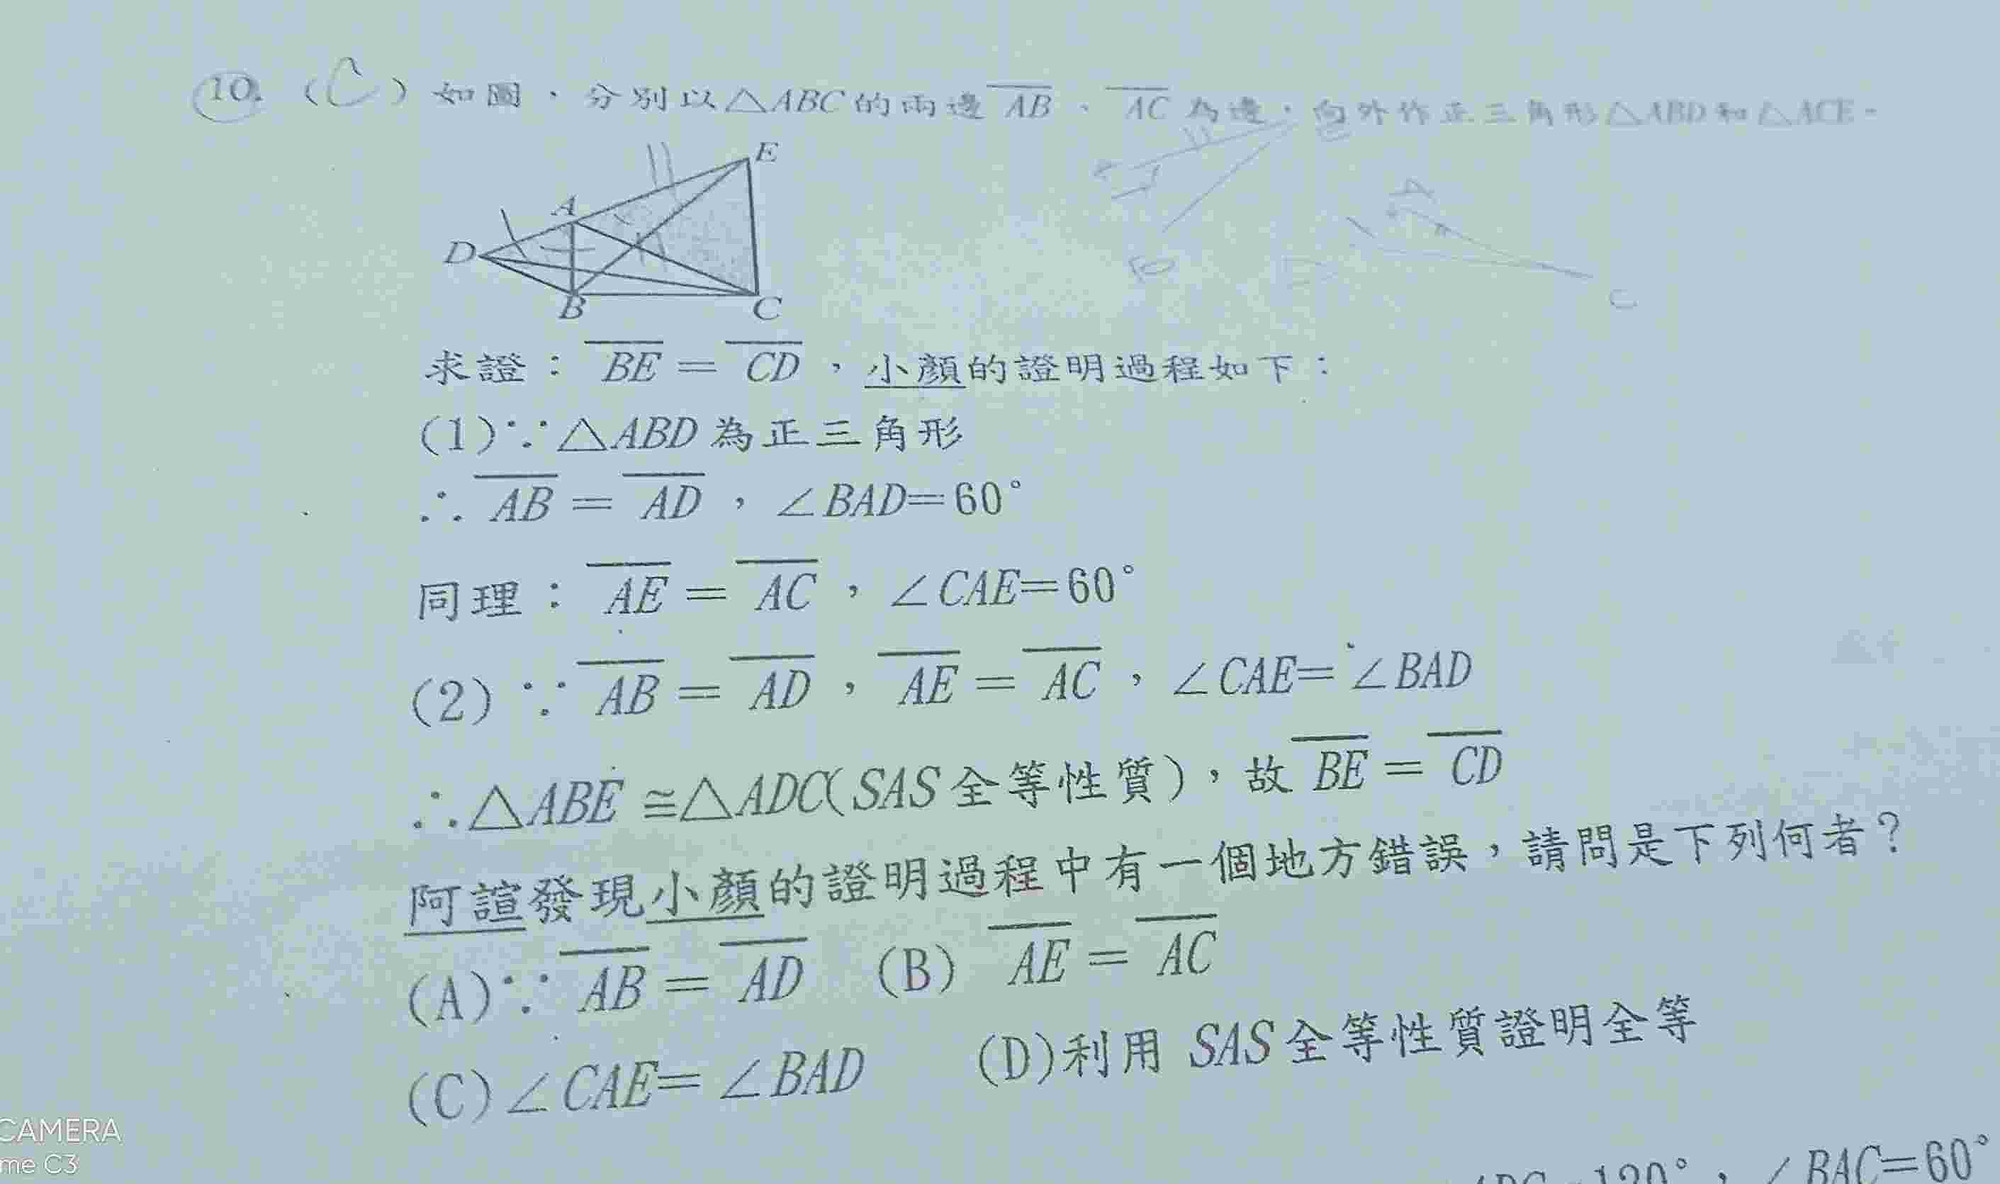 10. (C) 如圖，分別以△ABC的兩邊 AB、AC 為邊，向外作正三角形△ABD和△ACE。
E
A
D
B
C
A
C
求證：BE = CD，小顏的證明過程如下：
(1)∵△ABD 為正三角形
∴ AB = AD，∠BAD=60°
同理：AE = AC，∠CAE=60°
(2) ∵ AB = AD，AE = AC，∠CAE=∠BAD
∴△ABE ≅△ADC(SAS 全等性質)，故 BE = CD
阿諠發現小顏的證明過程中有一個地方錯誤，請問是下列何者？
(A)∵ AB = AD (B) AE = AC
(C)∠CAE=∠BAD (D)利用 SAS 全等性質證明全等
120°，∠BAC=60°
CAMERA
me C3